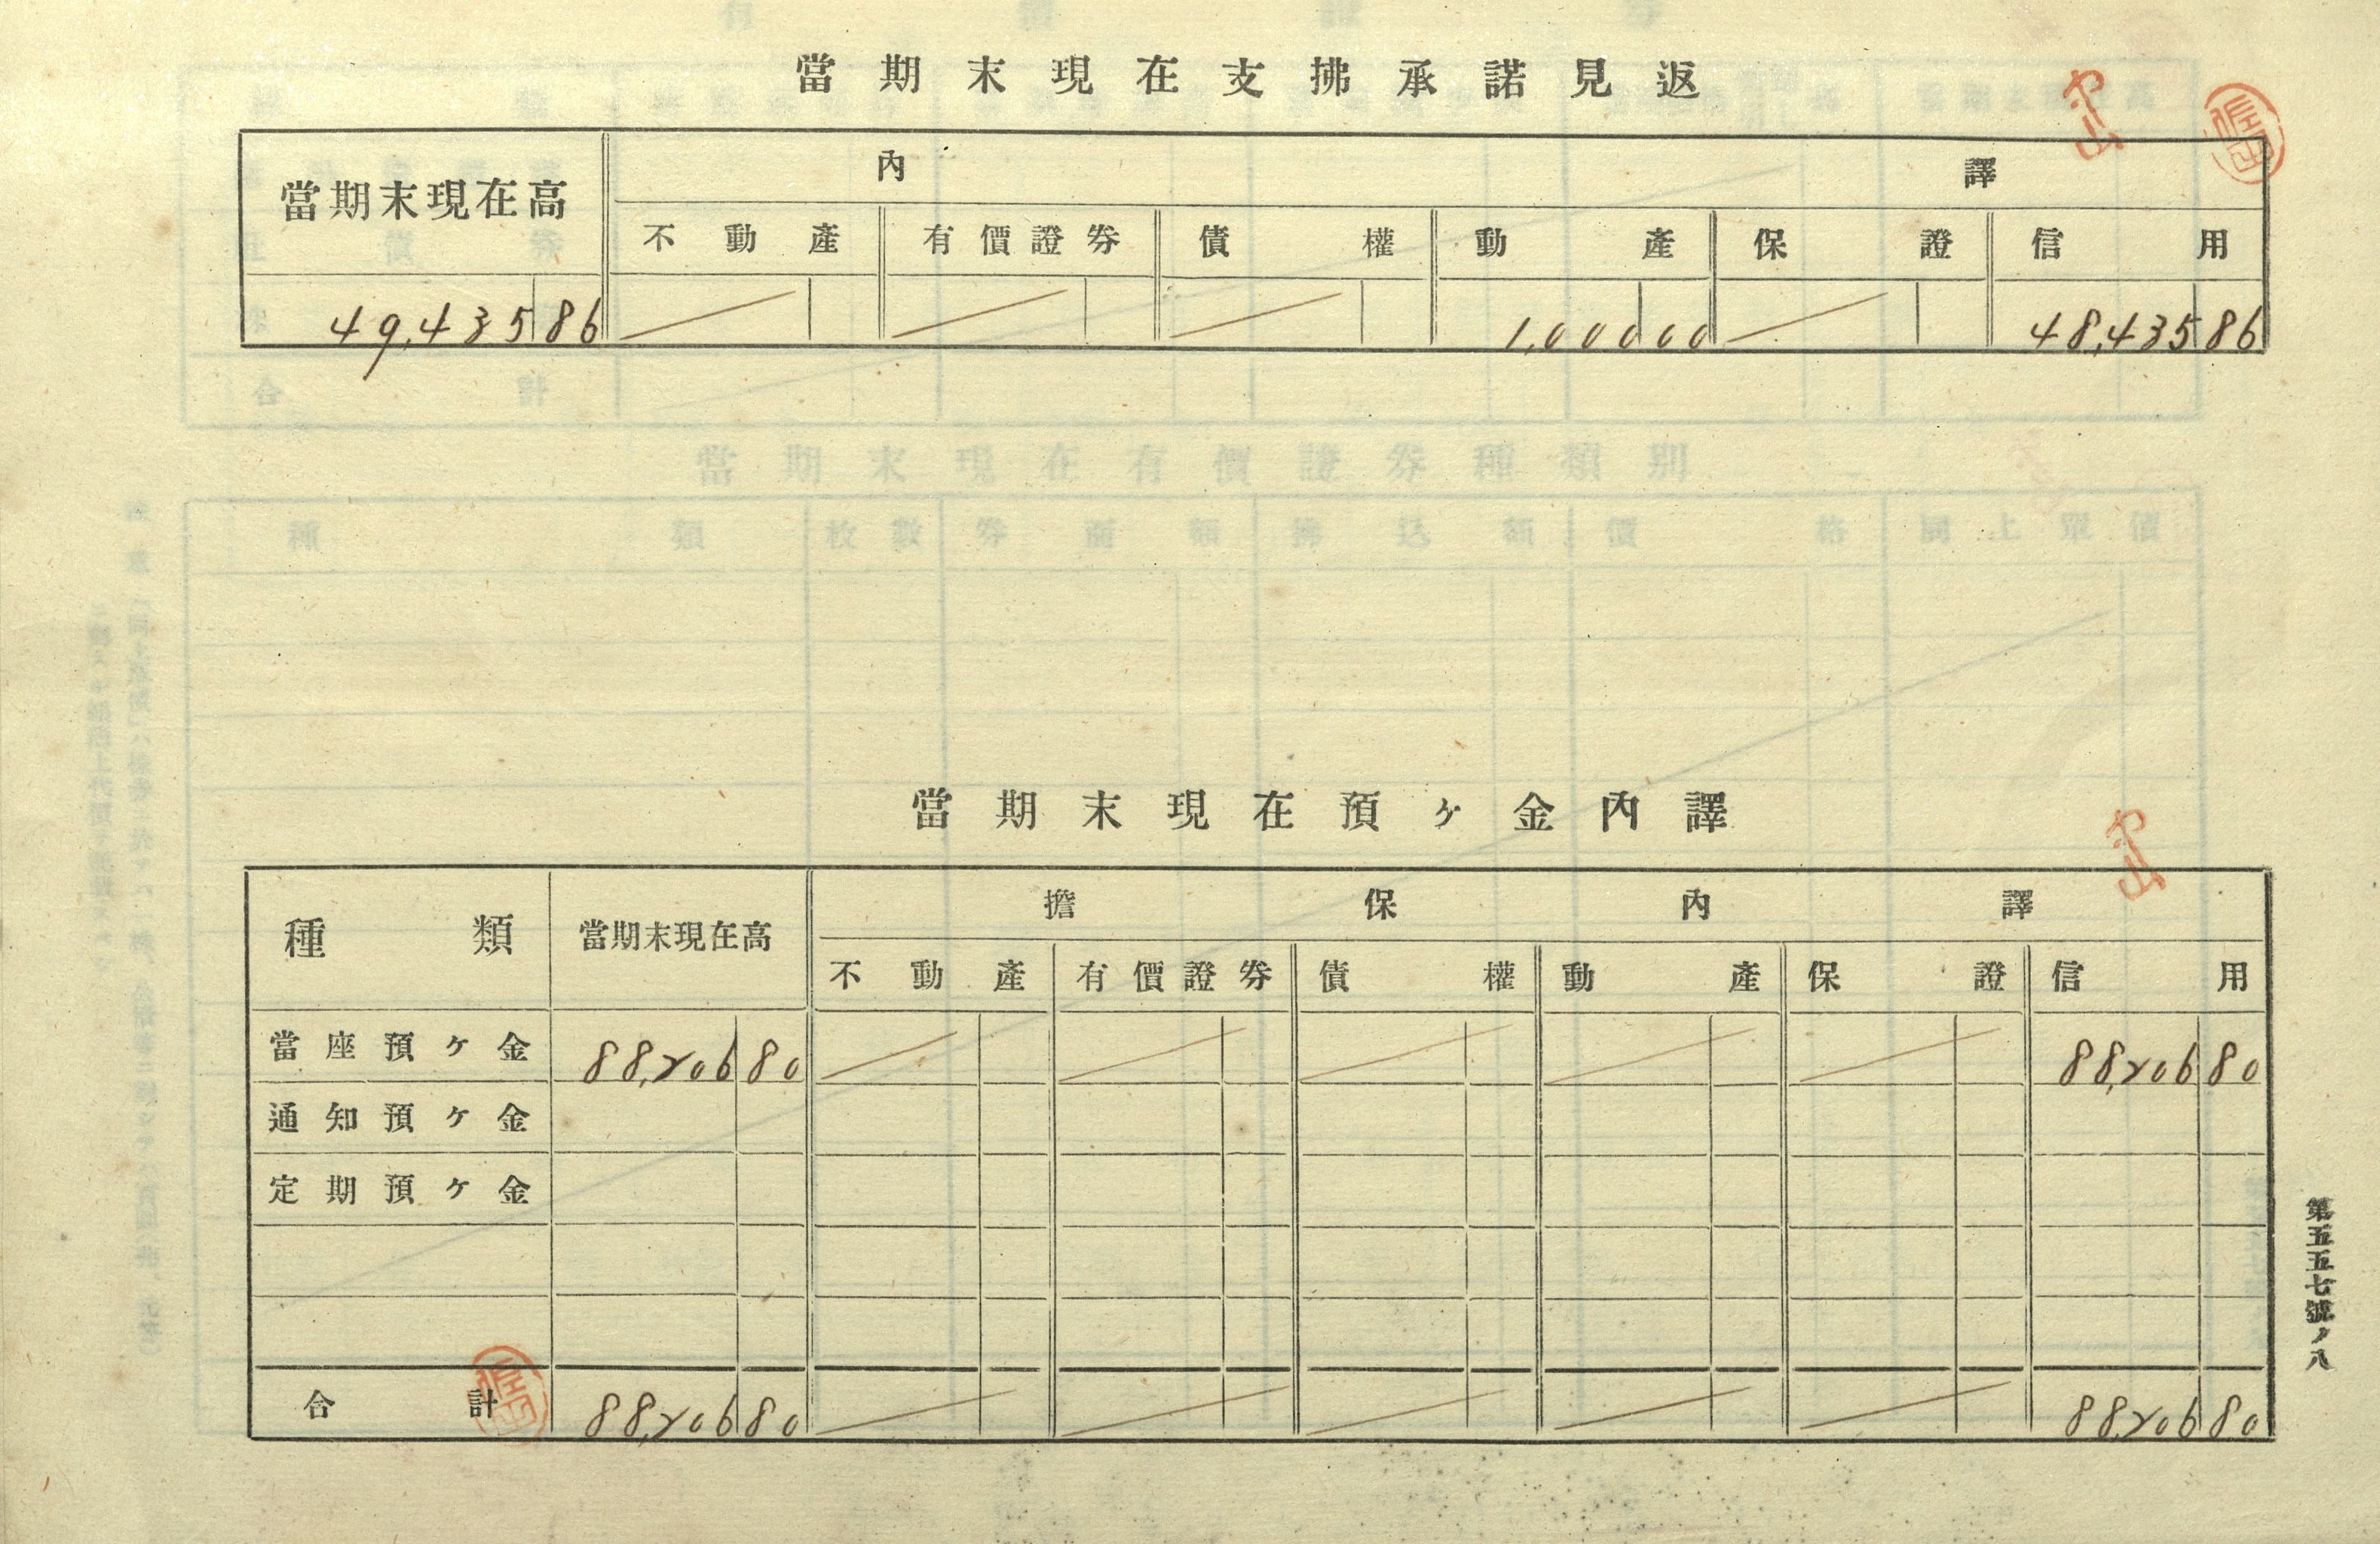 當期末現在支拂承諾見返
當期末現在高 內譯
不動產 有價證券 債權 動產 保證 信用
49,435 86 1,000 00 48,435 86
當期末現在預ヶ金內譯
種類 當期末現在高 擔保內譯
不動產 有價證券 債權 動產 保證 信用
當座預ヶ金 88,206 80 88,206 80
通知預ヶ金
定期預ヶ金
合計 88,206 80 88,206 80
第五五七號ノ八